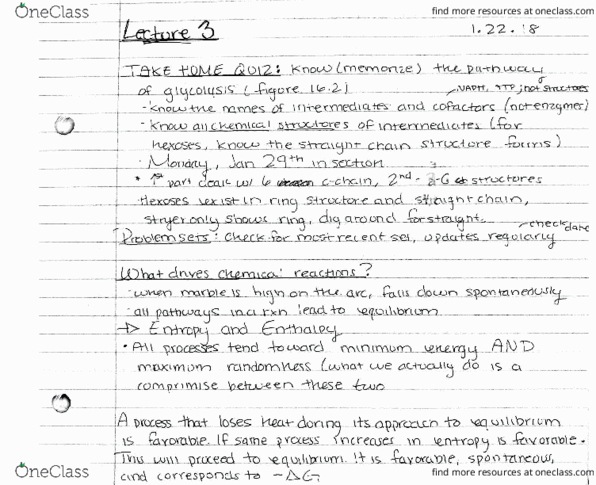 OneClass
find more resources at oneclass.com
Lecture 3
1.22.18
TAKE HOME QUIZ: Know (memorize) the pathway
of glycolysis (figure 16.2)
NADH, ATP; not structures
·know the names of intermediates and cofactors (not enzymes)
·Know all chemical structures of intermediates (for
hexoses, know the straight chain structure forms)
·Monday, Jan 29th in section
* 1st part deals w/ 6 c-chain, 2nd - 3-C structures
Hexoses exist in ring structure and straight chain,
stryer only shows ring, dig around for straight.
check date
Problem sets: Check for most recent set, updates regularly
What drives chemical reactions?
·when marble is high on the arc, falls down spontaneously
·all pathways in a rxn lead to equilibrium
→ Entropy and Enthalpy
• All processes tend toward minimum energy AND
maximum randomness (what we actually do is a
comprimise between these two
A process that loses heat during its approach to equilibrium
is favorable. If same process increases in entropy is favorable.
This will proceed to equilibrium. It is favorable, spontaneous,
and corresponds to -ΔG.
OneClass
find more resources at oneclass.com